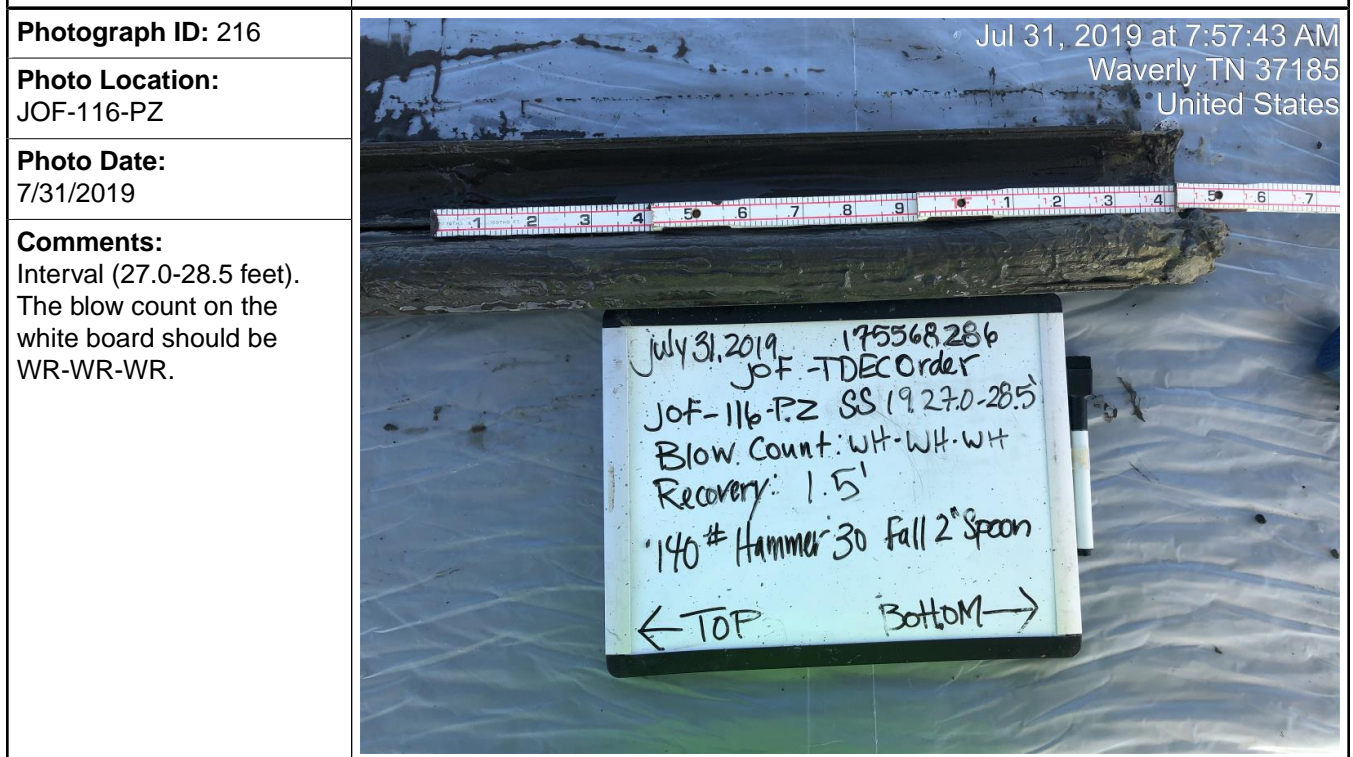 Photograph ID: 216
Photo Location:
JOF-116-PZ
Photo Date:
7/31/2019
Comments:
Interval (27.0-28.5 feet).
The blow count on the
white board should be
WR-WR-WR.
Jul 31, 2019 at 7:57:43 AM
Waverly TN 37185
United States
.1 .2 .3 .4 .5 .6 .7 .8 .9 1F 1.1 1.2 1.3 1.4 1.5 1.6 1.7
July 31, 2019 175568286
JOF-TDEC Order
JOF-116-PZ SS 19 27.0-28.5'
Blow Count: WH-WH-WH
Recovery: 1.5'
140# Hammer 30 Fall 2" Spoon
← TOP BOTTOM →